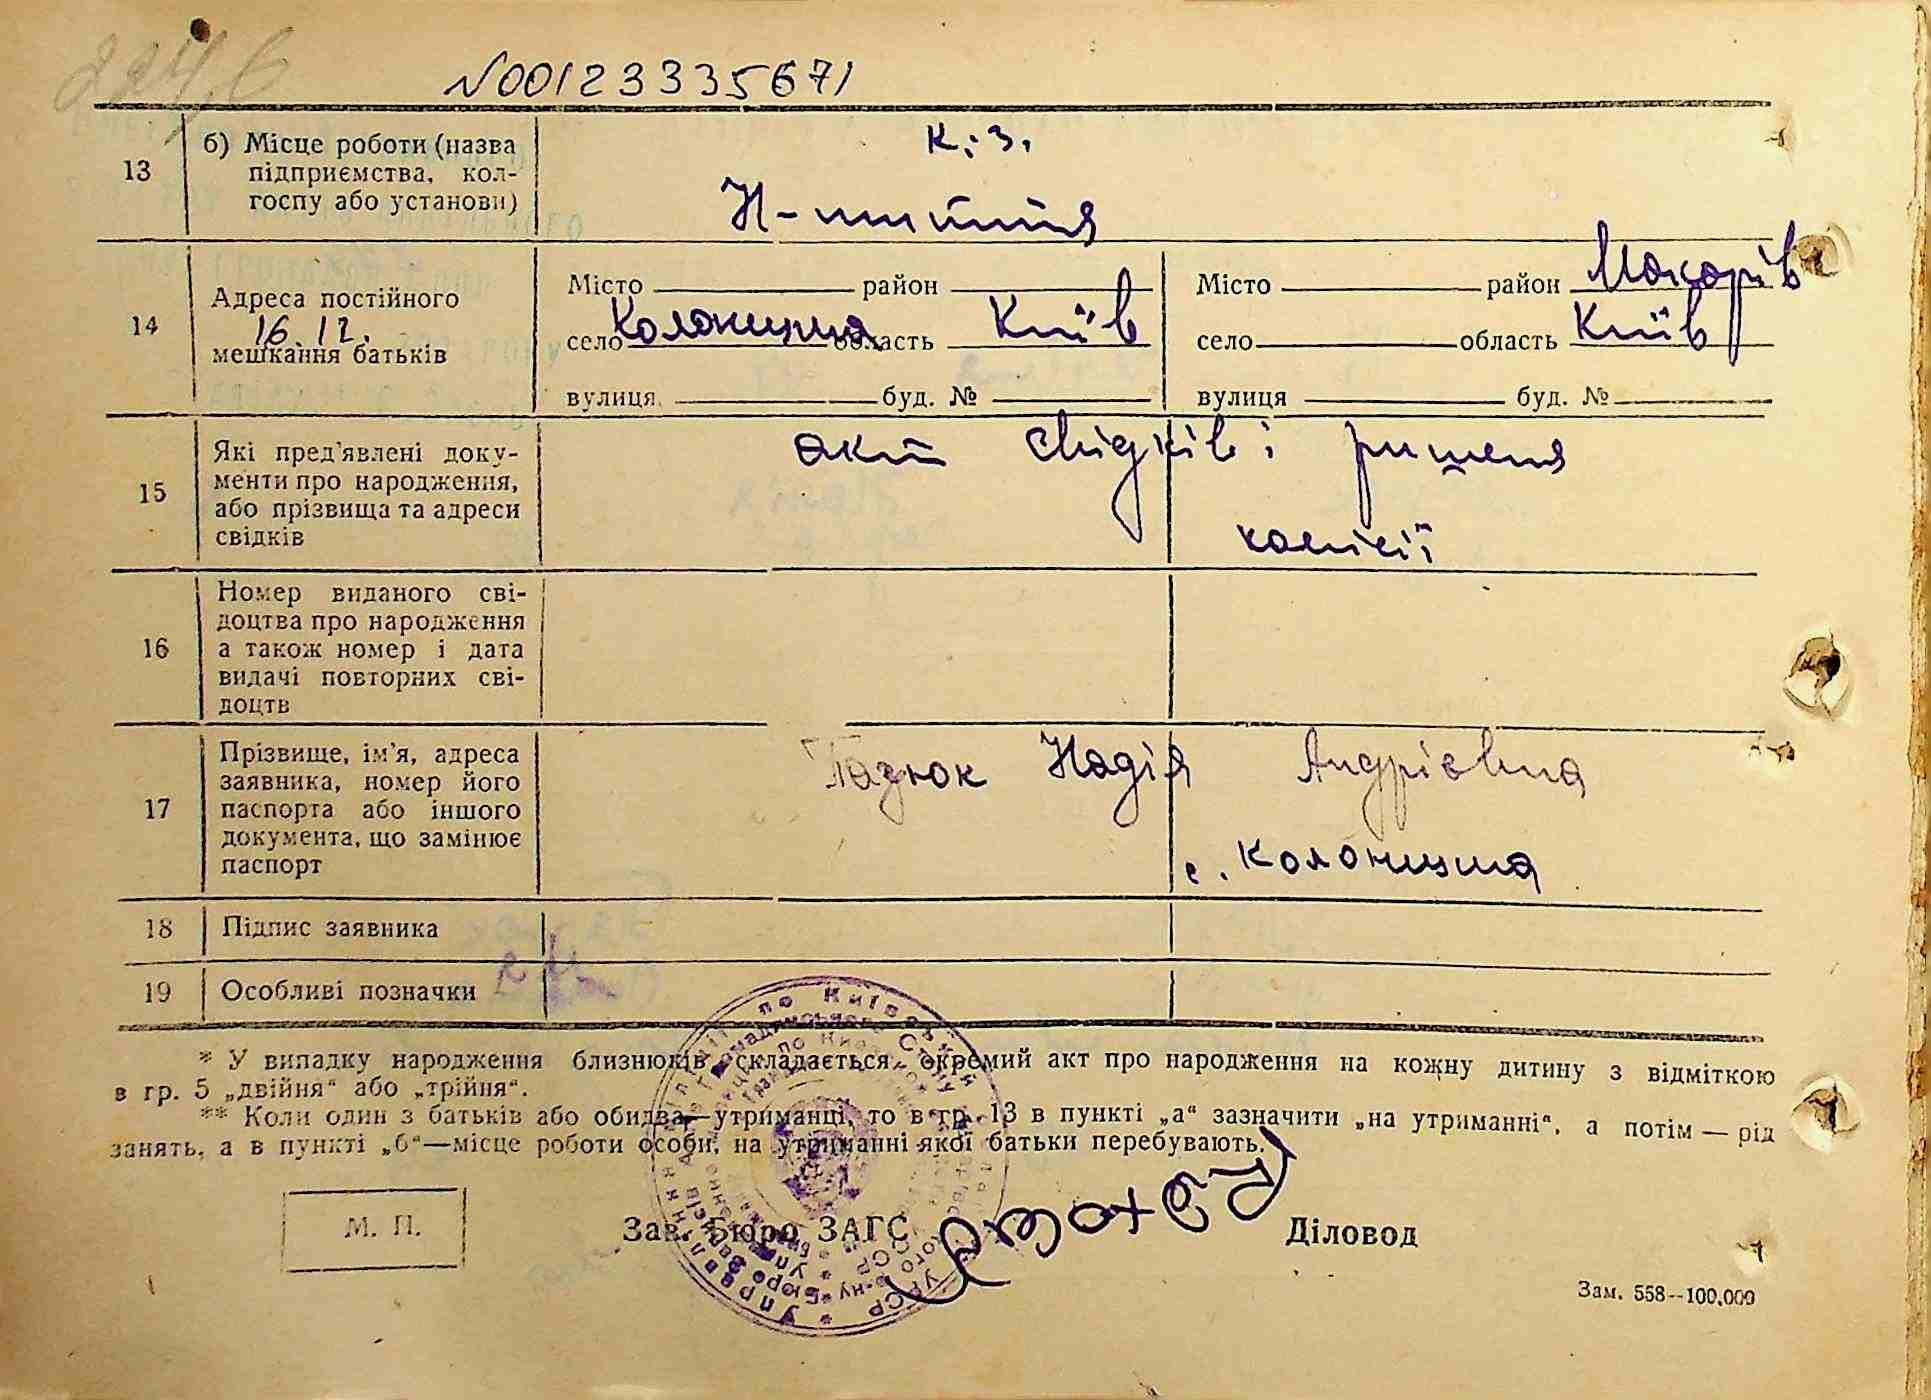 224.б
№00123335671
13
б) Місце роботи (назва
підприємства, кол-
госпу або установи)
к. з.
14
Адреса постійного
16.12.
мешкання батьків
Місто район
село Колонщина область Київ
вулиця буд. №
Місто район Макарів
село область Київ
вулиця буд. №
15
Які пред'явлені доку-
менти про народження,
або прізвища та адреси
свідків
акт свідків і ришеня
комісії
16
Номер виданого сві-
доцтва про народження
а також номер і дата
видачі повторних сві-
доцтв
17
Прізвище, ім'я, адреса
заявника, номер його
паспорта або іншого
документа, що замінює
паспорт
Надія Андріевна
с. Колонщина
18
Підпис заявника
19
Особливі позначки
* У випадку народження близнюків складається окремий акт про народження на кожну дитину з відміткою
в гр. 5 „двійня“ або „трійня“.
** Коли один з батьків або обидва—утриманці, то в гр. 13 в пункті „а“ зазначити „на утриманні“, а потім — рід
занять, а в пункті „б“—місце роботи особи, на утриманні якої батьки перебувають.
М. П.
Зав. Бюро ЗАГС
Діловод
Зам. 558--100,000